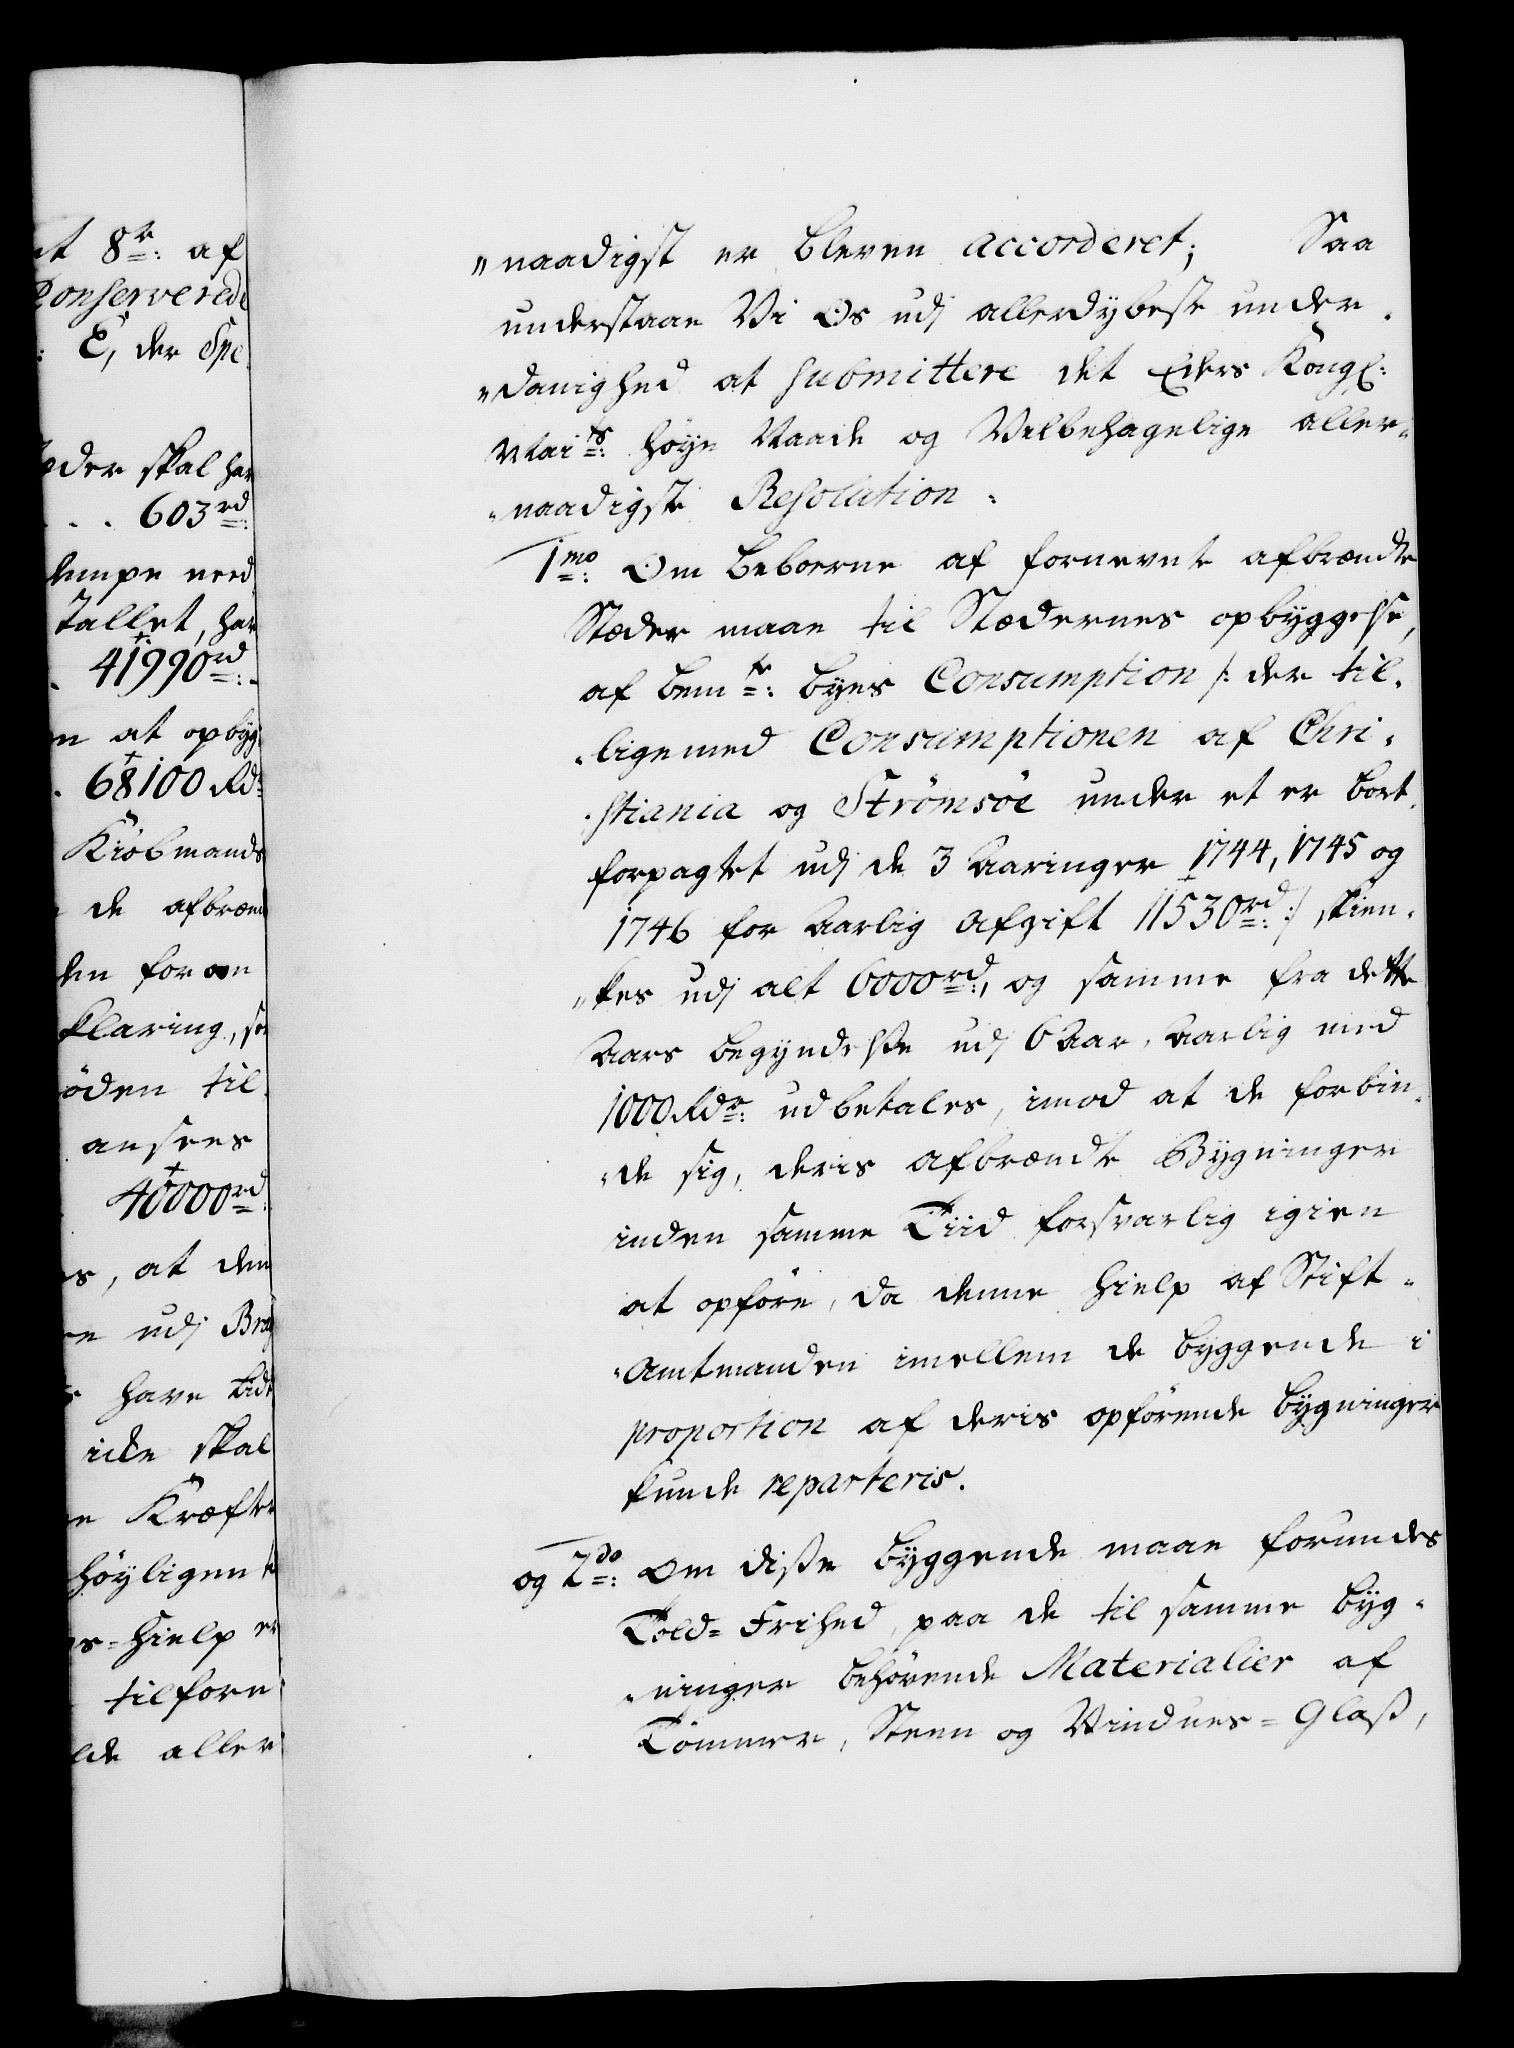 nt 8de: af
Conserverede
: E, der Spe
æder skal har
. . . 603rd:
lempe need
Tallet, har
. 41990rd:
n at opbyg
. 68100 Rdr
Kiöbmands
de afbræn
den for en
klaring, so
öden til
ansees
40000rd:
s, at den
re udj Brag
s have tid
icke skal
ne Kræfter
höyligen t
s-Hielp er
tilforn
lde aller
"naadigst er bleven accorderet; Saa
understaae Vi Os udj allerdybeste under-
"danighed at submittere det Eders Kongl:
Maits: höye Naade og Velbehagelige aller-
"naadigste Resolution.
1mo: Om beboerne af fornevnte afbrændte
Stæder maae til Stædernes opbyggelse,
af bemte: byes Consumption /: der til-
"ligemed Consumptionen af Chri-
"stiania og Strömsöe under et er bort-
forpagtet udj de 3 Aaringer 1744, 1745 og
1746 for Aarlig Afgift 11530rd: :/ skien-
"kes udj alt 6000rd:, og samme fra dette
Aars begyndelse udj 6 Aar, Aarlig med
1000 Rdr: udbetales, imod at de forbin-
"de sig, deris afbrændte Bygninger
inden samme Tiid forsvarlig igien
at opföre, da denne Hielp af Stift-
"Amtmanden imellem de byggende i
proportion af deris opförende bygninger
kunde reparteris.
og 2do: Om disse byggende maae forundes
Told-Frihed, paa de til samme byg-
"ninger behörende Materialier af
Tömmer, Steen og Vindues-Glass,